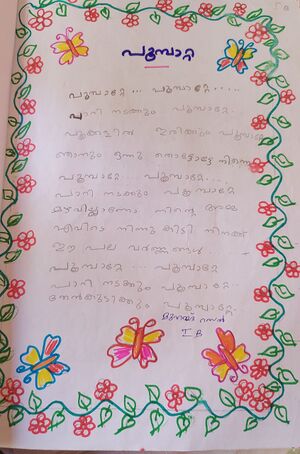 പൂമ്പാറ്റ
പൂമ്പാറ്റേ ... പൂമ്പാറ്റേ .....
പാറി നടക്കും പൂമ്പാറ്റേ.
പൂക്കളിൽ ഇരിക്കും പൂമ്പാറ്റേ
ഞാനും ഒന്നു തൊട്ടോട്ടേ നിന്നെ
പൂമ്പാറ്റേ ... പൂമ്പാറ്റേ....
പാറി നടക്കും പൂമ്പാറ്റേ
മഴവില്ലാണോ നിന്റെ അമ്മ
എവിടെ നിന്നു കിട്ടി നിനക്ക്
ഈ പല വർണ്ണങ്ങൾ.
പൂമ്പാറ്റേ ... പൂമ്പാറ്റേ
പാറി നടക്കും പൂമ്പാറ്റേ
തേൻകുടിക്കും പൂമ്പാറ്റേ.
I B